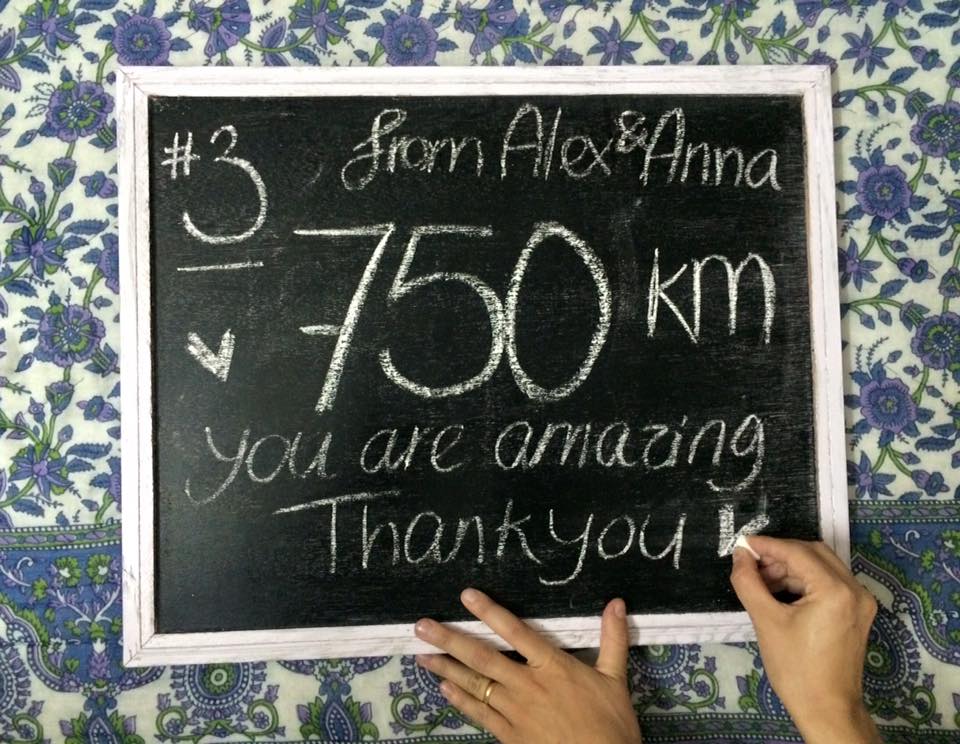 #3 from Alex & Anna
750 km
you are amazing
Thank you